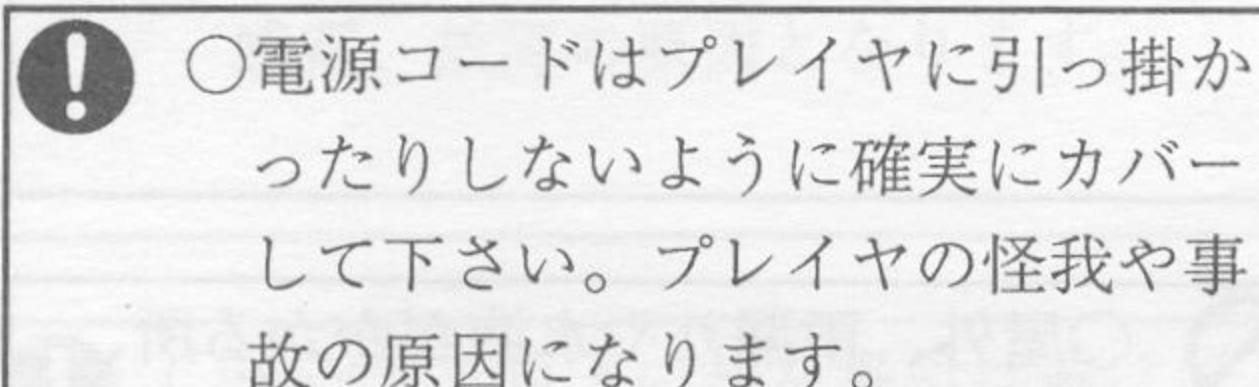 ○電源コードはプレイヤに引っ掛か
ったりしないように確実にカバー
して下さい。プレイヤの怪我や事
故の原因になります。